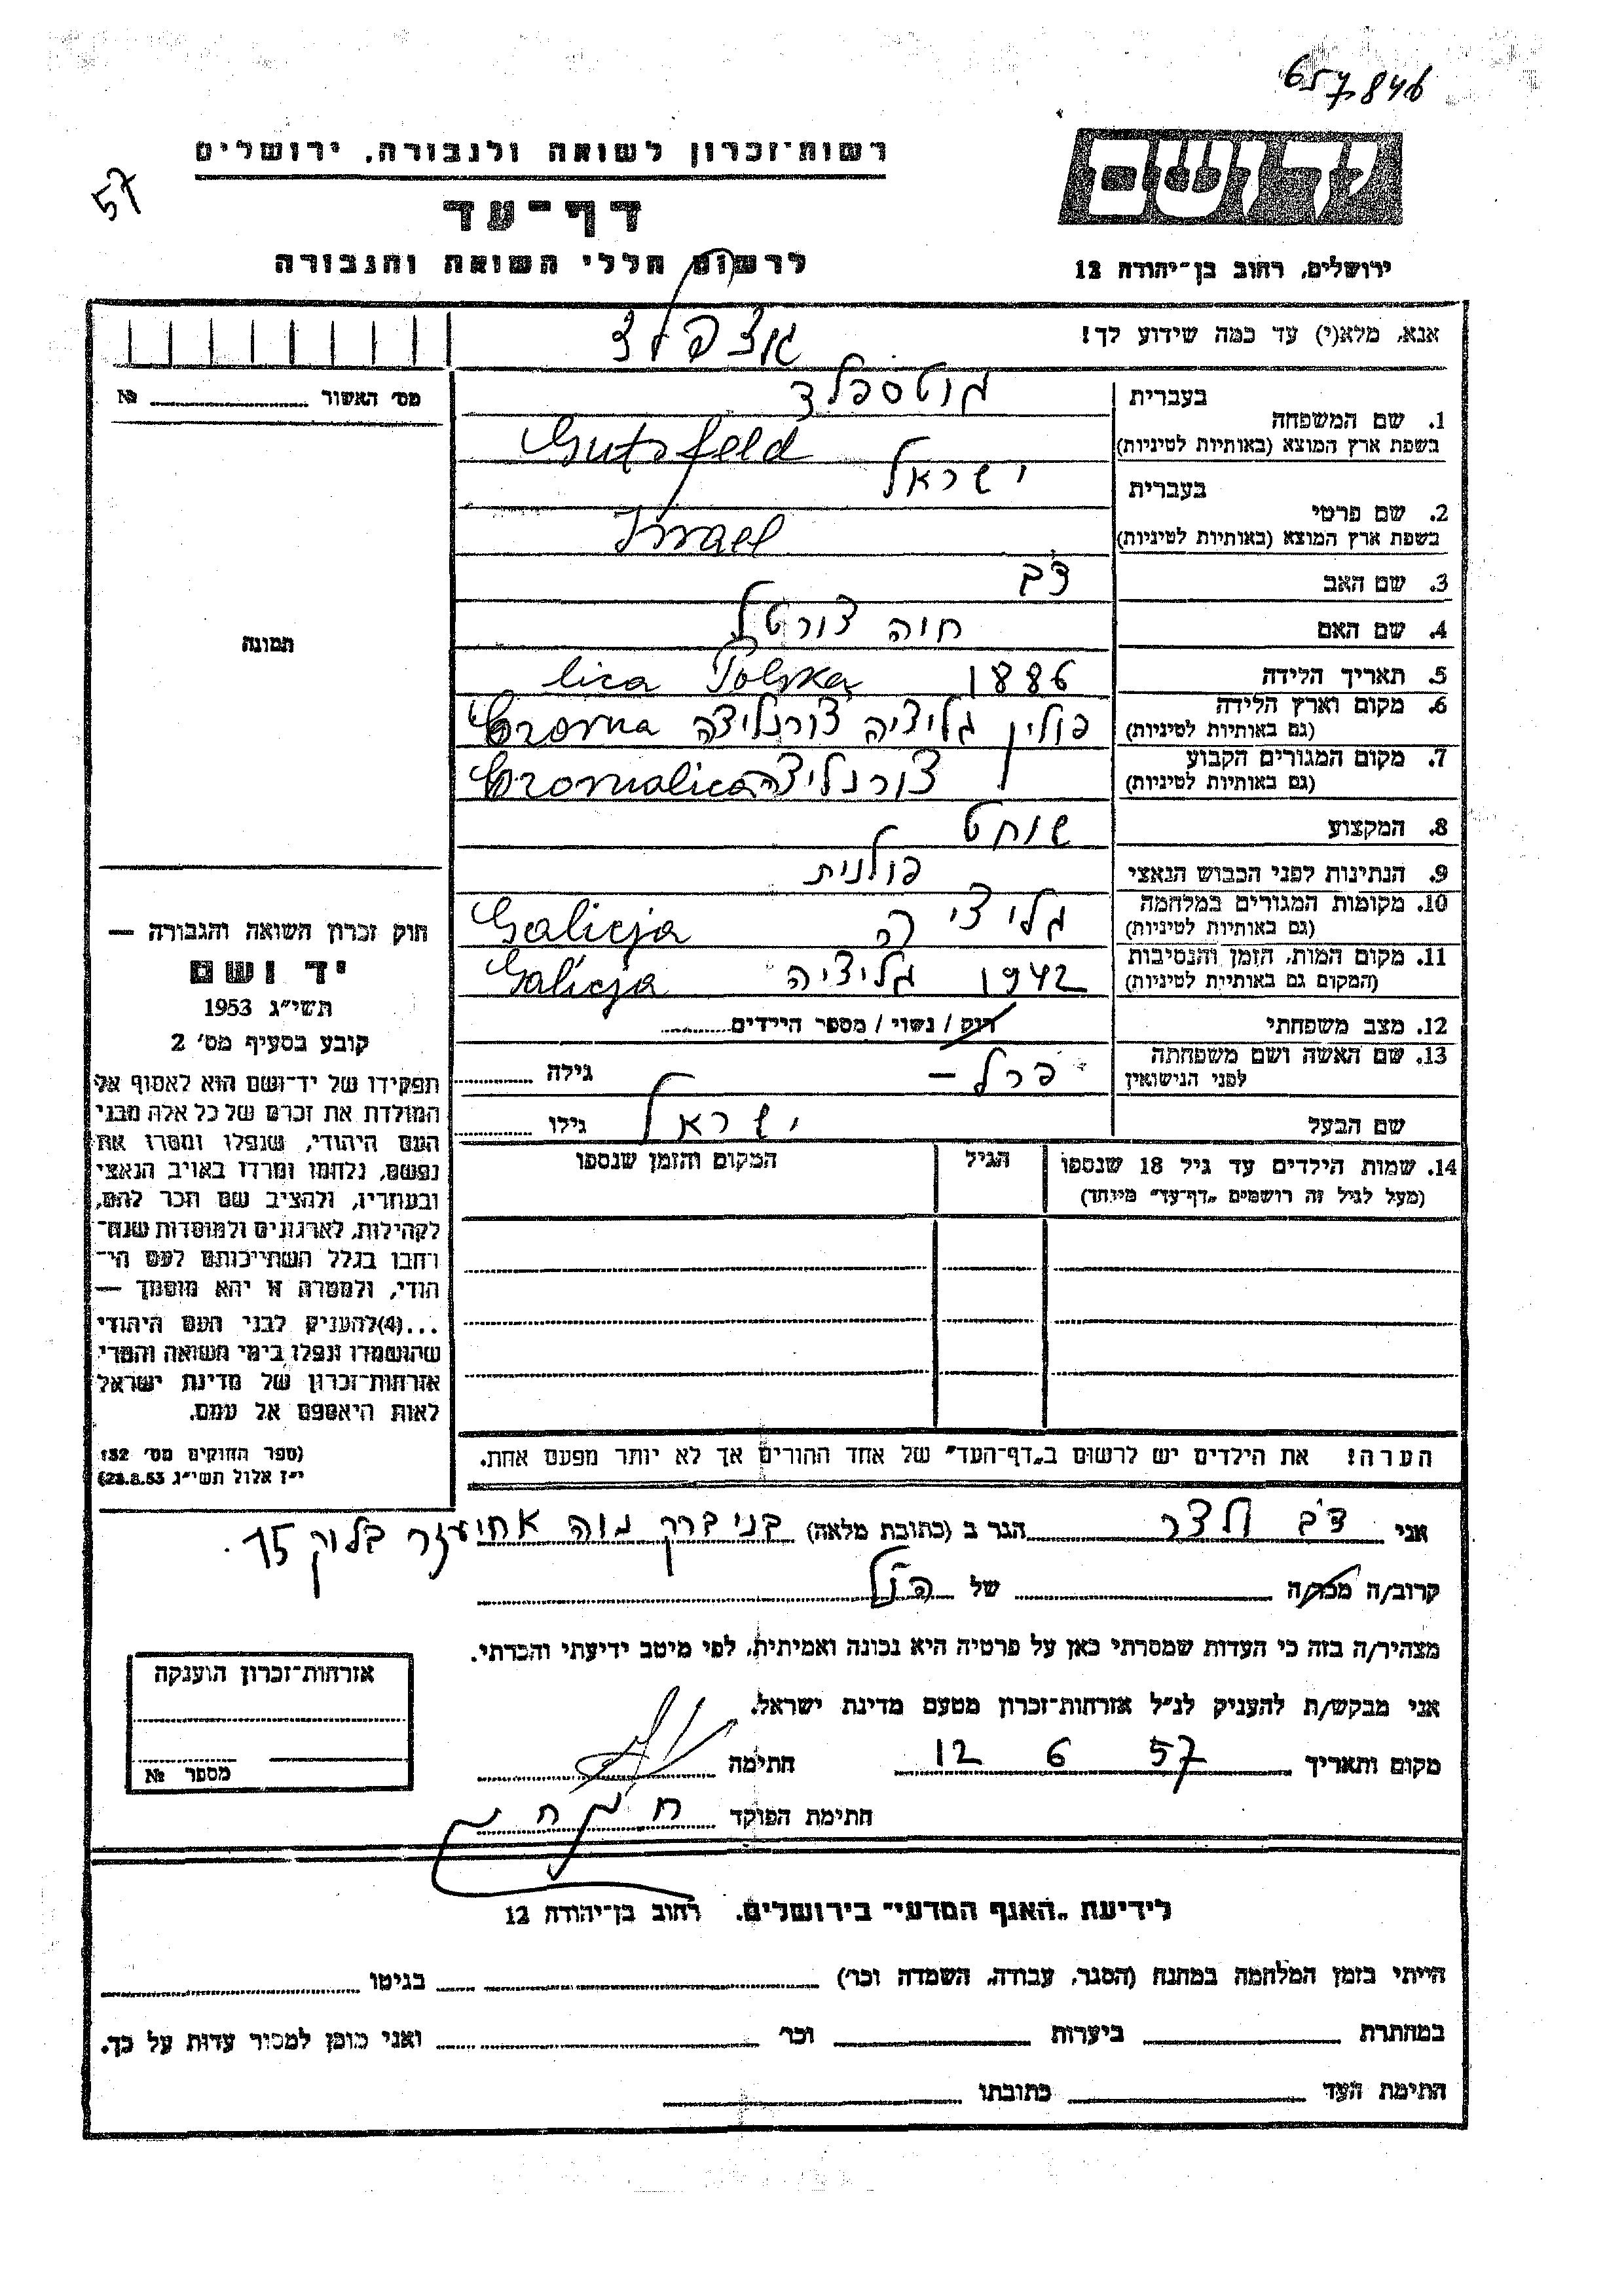 657846
57
ידושם
רשות־זכרון לשואה ולגבורה, ירושלים
דף־עד
לרשום חללי השואה והגבורה
ירושלים, רחוב בן־יהודה 12
אנא, מלא(י) עד כמה שידוע לך!
גוצפלד
בעברית גוטספלד
1. שם המשפחה
בשפת ארץ המוצא (באותיות לטיניות) Gutsfeld
בעברית ישראל
2. שם פרטי
בשפת ארץ המוצא (באותיות לטיניות) Israel
3. שם האב דב
4. שם האם חוה
5. תאריך הלידה 1886 Polska lica
6. מקום וארץ הלידה פולין גליציה צורנליצה
(גם באותיות לטיניות)
7. מקום המגורים הקבוע צורנליצה
(גם באותיות לטיניות)
8. המקצוע שוחט
9. הנתינות לפני הכבוש הנאצי פולנית
10. מקומות המגורים במלחמה גליציה Galicja
(גם באותיות לטיניות)
11. מקום המות, הזמן והנסיבות 1942 גליציה Galicja
(המקום גם באותיות לטיניות)
12. מצב משפחתי רוק / נשוי / מספר הילדים
13. שם האשה ושם משפחתה פרל – גילה
לפני הנישואין
שם הבעל ישראל גילו
14. שמות הילדים עד גיל 18 שנספו הגיל המקום והזמן שנספו
(מעל לגיל זה רושמים „דף־עד" מיוחד)
הערה! את הילדים יש לרשום ב„דף־העד" של אחד ההורים אך לא יותר מפעם אחת.
מס' האשור №
תמונה
חוק זכרון השואה והגבורה —
יד ושם
תשי"ג 1953
קובע בסעיף מס' 2
תפקידו של יד־ושם הוא לאסוף אל
המולדת את זכרם של כל אלה מבני
העם היהודי, שנפלו ומסרו את
נפשם, נלחמו ומרדו באויב הנאצי
ובעוזריו, ולהציב שם וזכר להם,
לקהילות, לארגונים ולמוסדות שנח־
רבו בגלל השתייכותם לעם הי־
הודי, ולמטרה זו יהא מוסמך —
...(4)להעניק לבני העם היהודי
שהושמדו ונפלו בימי השואה והמרי
אזרחות־זכרון של מדינת ישראל
לאות היאספם אל עמם.
(ספר החוקים מס' 132
י"ז אלול תשי"ג 28.8.53)
אני דב הגר ב (כתובת מלאה) בני ברק נוה אחיעזר בלוק 15.
קרוב/ה מכר/ה של הנ"ל
מצהיר/ה בזה כי העדות שמסרתי כאן על פרטיה היא נכונה ואמיתית, לפי מיטב ידיעתי והכרתי.
אני מבקש/ת להעניק לנ"ל אזרחות־זכרון מטעם מדינת ישראל.
מקום ותאריך 12 6 57 חתימה
חתימת הפוקד
אזרחות־זכרון הוענקה
מספר №
לידיעת „האגף המדעי" בירושלים. רחוב בן־יהודה 12
הייתי בזמן המלחמה במחנה (הסגר, עבודה, השמדה וכו') בגיטו
במחתרת ביערות וכו' ואני מוכן למסור עדות על כך.
חתימת העד כתובתו